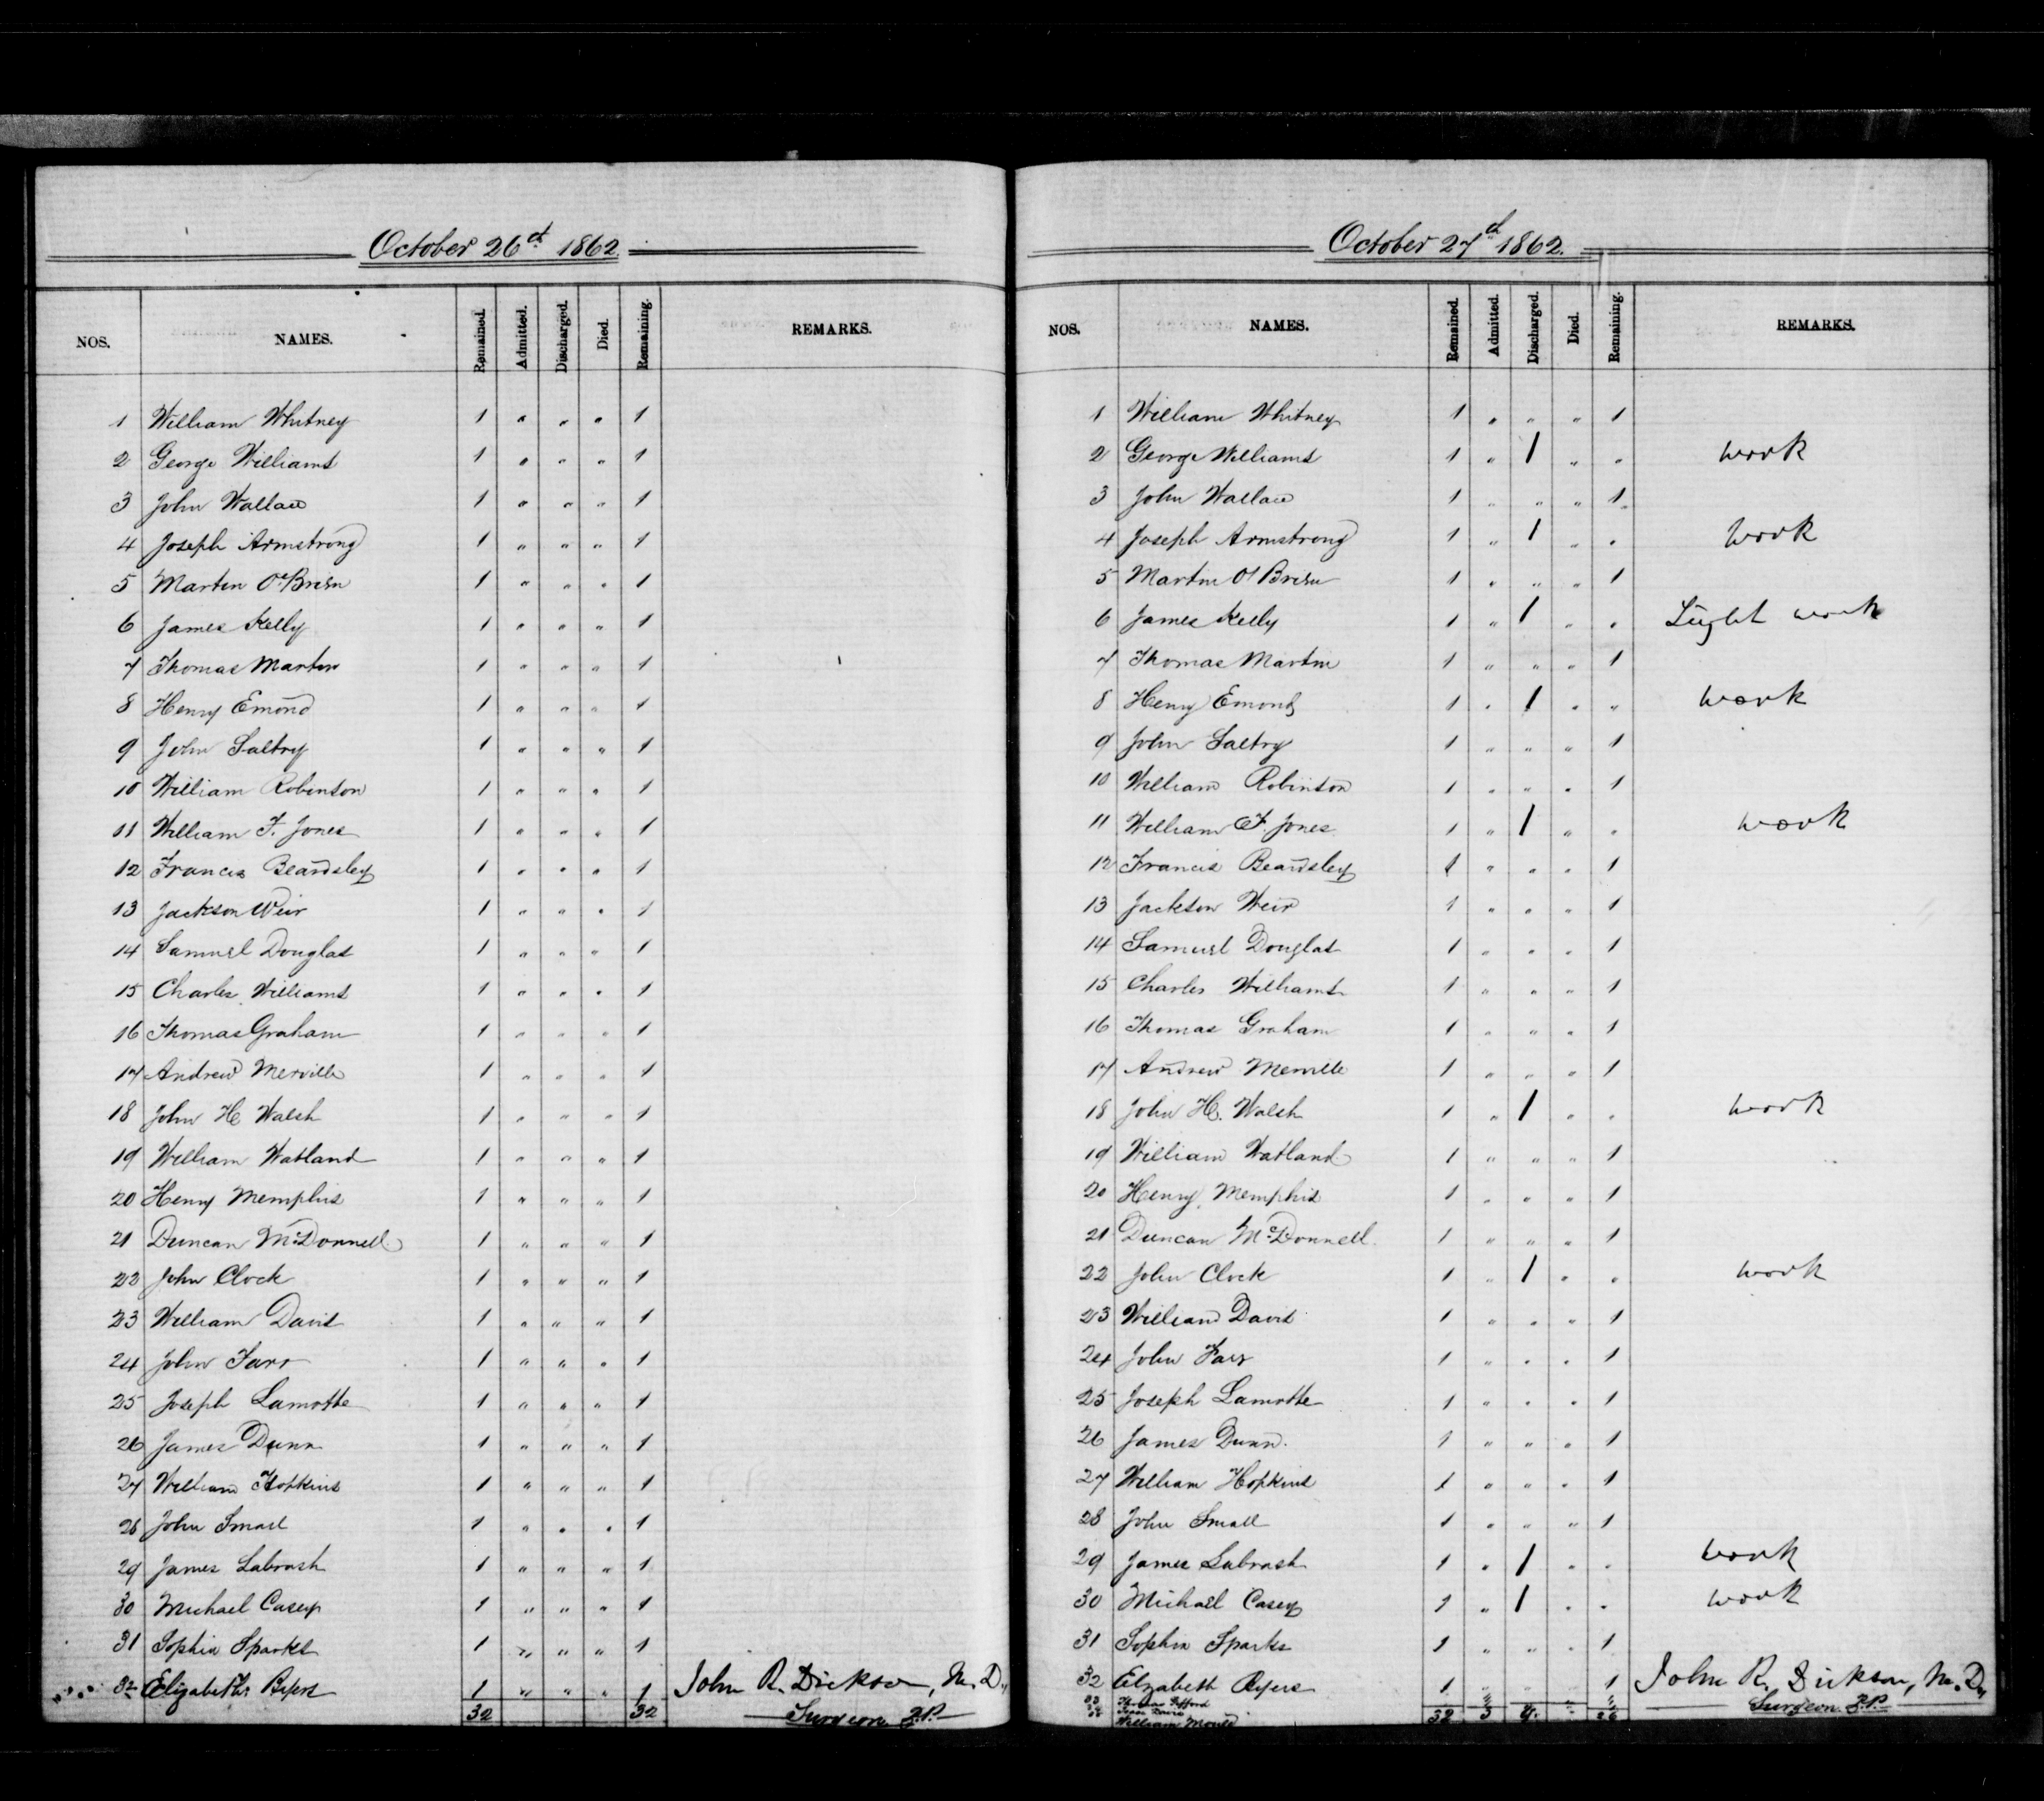 October 26th 1862.
NOS. NAMES. Remained. Admitted. Discharged. Died. Remaining. REMARKS.
1 William Whitney 1 " " " 1
2 George Williams 1 " " " 1
3 John Wallace 1 " " " 1
4 Joseph Armstrong 1 " " " 1
5 Martin O'Brien 1 " " " 1
6 James Kelly 1 " " " 1
7 Thomas Martin 1 " " " 1
8 Henry Emond 1 " " " 1
9 John Saltry 1 " " " 1
10 William Robinson 1 " " " 1
11 William F. Jones 1 " " " 1
12 Francis Beardsley 1 " " " 1
13 Jackson Weir 1 " " " 1
14 Samuel Douglas 1 " " " 1
15 Charles Williams 1 " " " 1
16 Thomas Graham 1 " " " 1
17 Andrew Merville 1 " " " 1
18 John H. Walsh 1 " " " 1
19 William Watland 1 " " " 1
20 Henry Memphis 1 " " " 1
21 Duncan McDonnell 1 " " " 1
22 John Clock 1 " " " 1
23 William Davis 1 " " " 1
24 John Farr 1 " " " 1
25 Joseph Lamotte 1 " " " 1
26 James Dunn 1 " " " 1
27 William Hopkins 1 " " " 1
28 John Small 1 " " " 1
29 James Labrash 1 " " " 1
30 Michael Casey 1 " " " 1
31 Sophia Sparks 1 " " " 1
32 Elizabeth Ryers 1 " " " 1 John R. Dickson, M.D.,
32 32 Surgeon P.P.
October 27th 1862.
NOS. NAMES. Remained. Admitted. Discharged. Died. Remaining. REMARKS.
1 William Whitney 1 " " " 1
2 George Williams 1 " 1 " " work
3 John Wallace 1 " " " 1
4 Joseph Armstrong 1 " 1 " " work
5 Martin O'Brien 1 " " " 1
6 James Kelly 1 " 1 " " Light work
7 Thomas Martin 1 " " " 1
8 Henry Emond 1 " 1 " " work
9 John Saltry 1 " " " 1
10 William Robinson 1 " " " 1
11 William F. Jones 1 " 1 " " work
12 Francis Beardsley 1 " " " 1
13 Jackson Weir 1 " " " 1
14 Samuel Douglas 1 " " " 1
15 Charles Williams 1 " " " 1
16 Thomas Graham 1 " " " 1
17 Andrew Merville 1 " " " 1
18 John H. Walsh 1 " 1 " " work
19 William Watland 1 " " " 1
20 Henry Memphis 1 " " " 1
21 Duncan McDonnell 1 " " " 1
22 John Clock 1 " 1 " " work
23 William Davis 1 " " " 1
24 John Farr 1 " " " 1
25 Joseph Lamotte 1 " " " 1
26 James Dunn 1 " " " 1
27 William Hopkins 1 " " " 1
28 John Small 1 " " " 1
29 James Labrash 1 " 1 " " work
30 Michael Casey 1 " 1 " " work
31 Sophia Sparks 1 " " " 1
32 Elizabeth Ryers 1 " " " 1 John R. Dickson, M.D.,
33 Thomas
Davis Surgeon P.P.
William 32 3 9 " 26